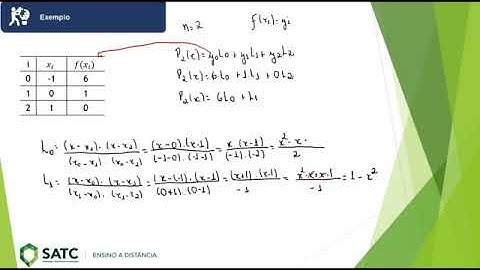 Exemplo
n=2 f(xi)=yi
i xi f(xi)
0 -1 6
1 0 1
2 1 0
P2(x)=y0L0+y1L1+y2L2
P2(x)=6L0+1L1+0L2
P2(x)=6L0+L1
L0=(x-x1).(x-x2)/(x0-x1)(x0-x2)=(x-0)(x-1)/(-1-0).(-1-1)=x.(x-1)/(-1).(-2)=x²-x/2
L1=(x-x0).(x-x2)/(x1-x0).(x1-x2)=(x-(-1)).(x-1)/(0+1).(0-1)=(x+1).(x-1)/-1=x²-x+x-1/-1=1-x²
SATC ENSINO A DISTÂNCIA